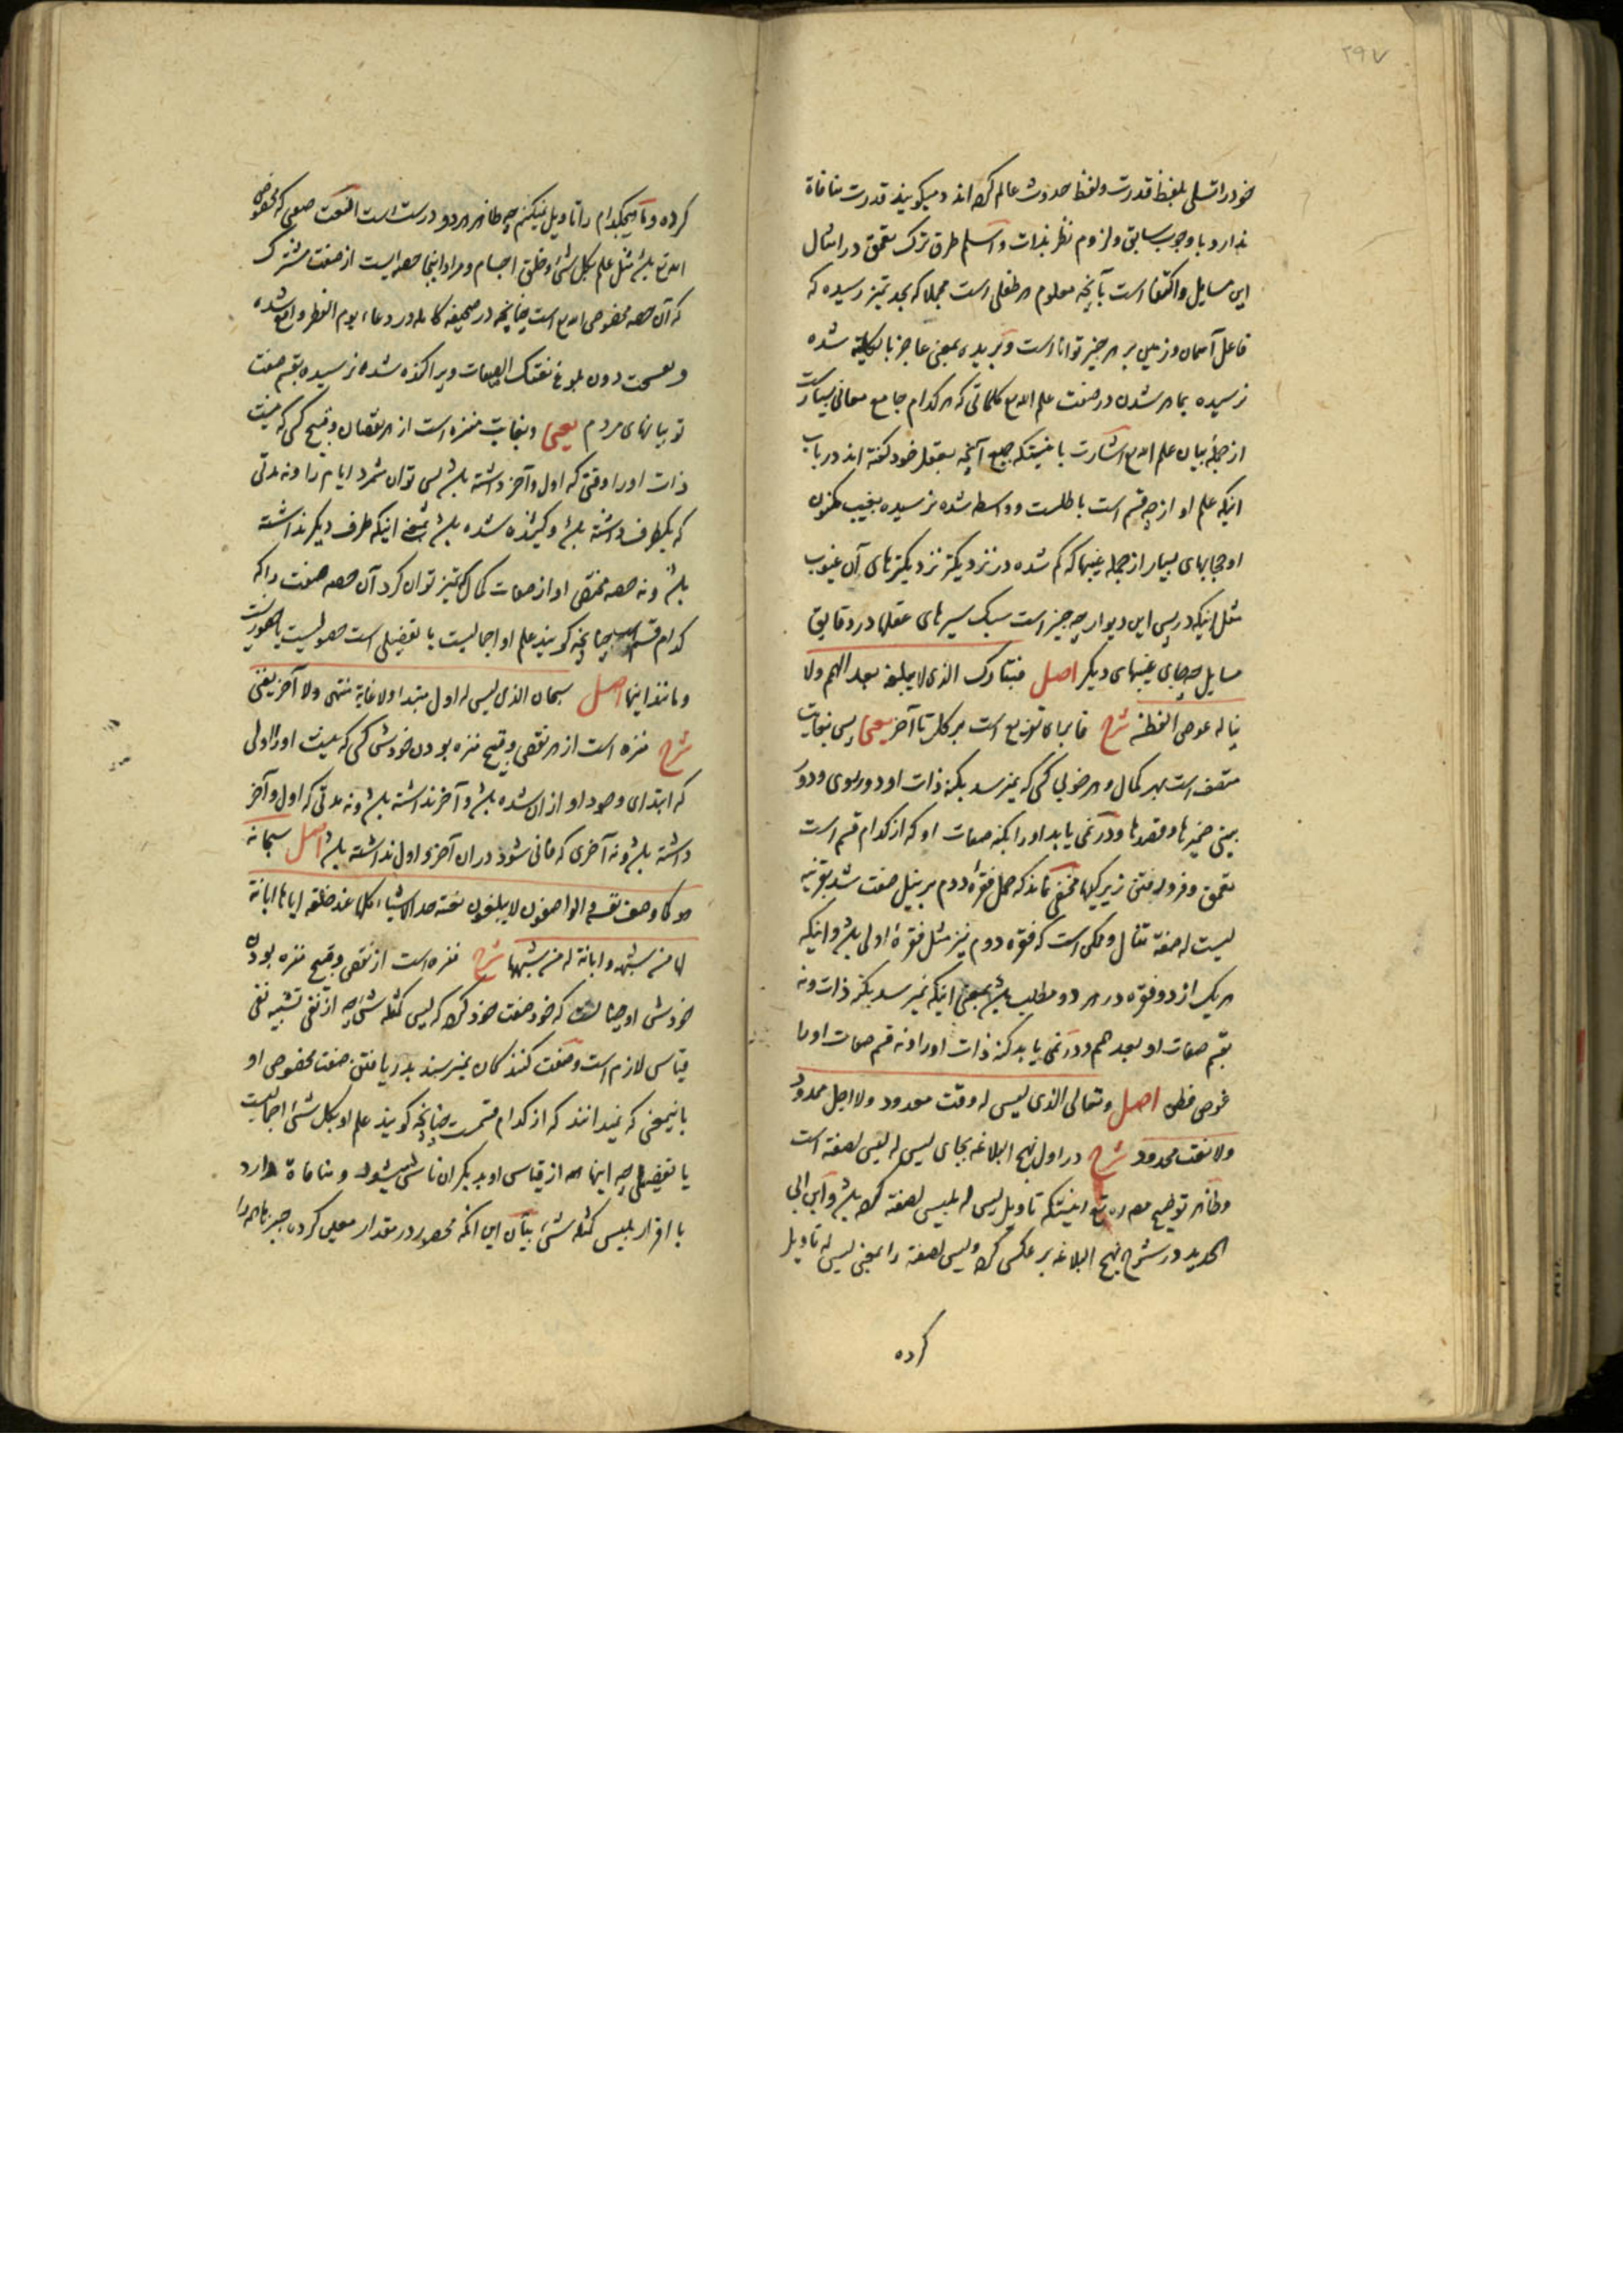 ۲۹۷
خود را تسلی بلفظ قدرت و لفظ حدوث عالم کرده اند و میکویند قدرت منافاة
ندارد با وجوب سابق و لزوم نظر بذات و اسلم طرق ترک تعمق در امثال
این مسایل و اکتفا است بآنچه معلوم هر طفلی است مجملا که بحد تمیز رسیده که
فاعل آسمان و زمین بر هر چیز توانا است و بریده بمعنی عاجز بالکلیه شده
نرسیده بماهر شدن در صفت علم الله تع کلماتی که هر کدام جامع معانی بسیارست
از جمله بیان علم الله تع اشارت باینستکه جمیع آنچه بعقل خود کفته اند در باب
اینکه علم او از چه قسم است باطلست و واسطه شده نرسیده بغیب مکنون
او حجابهای بسیار از جمله غیبها که کم شده در نزدیکتر نزدیکترهای آن غیوب
مثل اینکه در پس این دیوار چه چیز است سبک سیرهای عقلها در دقایق
مسایل چه جای غیبهای دیکر اصل فتبارک الذی لا یبلغه بعد الهمم ولا
یناله غوص الفطن شرح فا برای تفریع است بر کلام تا آخر یعنی پس بنهایت
متصف است بهر کمال و هر خوبی کسی که نمیرسد بکنه ذات او دور روی و دور
بینی ضمیرها و قصدها و درنمی یابد او را بکنه صفات او که از کدام قسم است
تعمق و فرو رفتن زیرکیها مخفی نماند که حمل فقره دوم بر نیل صفت شد بقرینه
لیست له صفة تنال و ممکن است که فقره دوم نیز مثل فقرۀ اولی باشد و اینکه
هر یک از دو فقره در هر دو مطلب باشد بمعنی اینکه نمیرسد بکنه ذات و نه
بقسم صفات او بعد همم و درنمی یابد کنه ذات او را و نه قسم صفات او را
غوص فطن اصل وتعالى الذی لیس له وقت معدود ولا اجل ممدود
ولا نعت محدود شرح در اول نهج البلاغه بجای لیس له لیس لصفته است
و ظاهر توضیح مصنف ره تع اینستکه تاویل لیس له بلیس لصفته کرده باشد و ابن ابی
الحدید در شرح نهج البلاغه بر عکس کرده و لیس لصفته را بمعنی لیس له تاویل
کرده
کرده و ما هیچکدام را تاویل نمیکنیم چه ظاهر هر دو درست است النعت صفتی که مخصوص
الله تع باشد مثل علم بکل شئ و خلق اجسام و مراد اینجا حصه ایست از صفت مشترک
که آن حصه مخصوص الله تع است چنانچه در صحیفه کامله در دعاء یوم الفطر واقع شده
وتفسخت دون بلوغ نعتک الصفات و پراکنده شده نرسیده بقسم صفت
تو بیانهای مردم یعنی و بغایت منزه است از هر نقصان و قبیح کسی که نیست
ذات او را وقتی که اول و آخر داشته باشد پس توان شمرد ایام را و نه مدتی
که یکطرف داشته باشد و کشیده شده باشد بمعنی اینکه طرف دیکر نداشته
باشد و نه حصه مختص او از صفات کمال که تمیز توان کرد آن حصه صفت را که
کدام قسم است چنانچه کویند علم او اجمالیست یا تفضیلی است حصولیست یا حضوریست
و مانند اینها اصل سبحان الذی لیس له اول مبتدا ولا غایة منتهی ولا آخر یفنی
شرح منزه است از هر نقص و قبیح منزه بودن خودش کسی که نیست او را اولی
که ابتدای وجود او از ان شده باشد و آخر نداشته باشد و نه مدتی که اول و آخر
داشته باشد و نه آخری که فانی شود در ان آخر و اول نداشته باشد اصل سبحانه
هو کما وصف نفسه والواصفون لا یبلغون نعته حد الاشیاء کلها عند خلقه ایاها ابانة
لها من شبهه وابانة له من شبهها شرح منزه است از نقص و قبیح منزه بودن
خودش او چنانست که خود صفت خود کرده که لیس کمثله شئ چه از نفی تشبیه نفی
قیاس لازم است و صفت کنندکان نمیرسند بدریافتن صفت مخصوص او
باینمعنی که نمیدانند که از کدام قسمت چنانچه کویند علم او بکل شئ اجمالیست
یا تفضیلی چه اینها همه از قیاس او بدیکران ناشی میشود و منافاة دارد
با اقرار بلیس کمثله شئ بیان این انکه محصور در مقدار معین کرده چیزها همه را